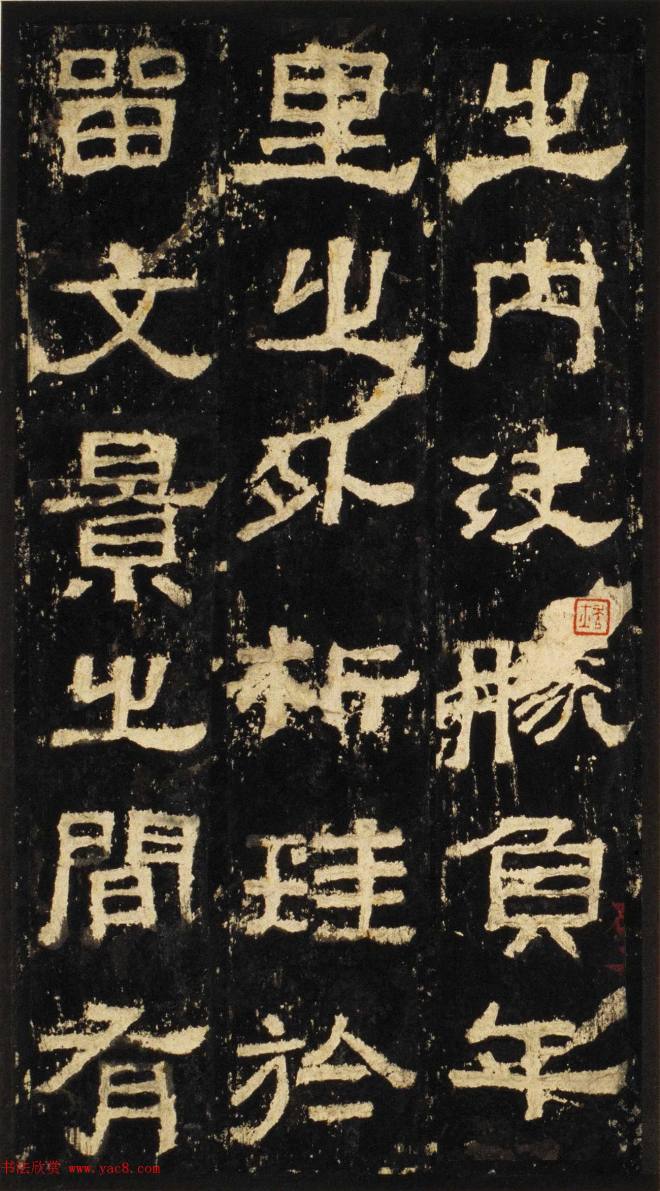 之内决勝負千
里之外析珪於
留文景之間有
书法欣赏 www.yac8.com